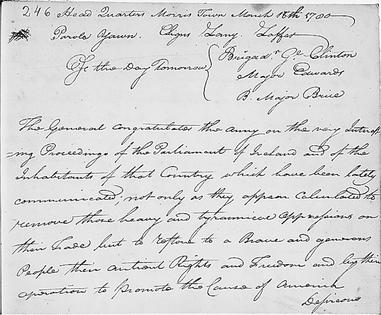 246 Head Quarters Morris Town March 16th 1780
Parole Countersigns
Of the Day Tomorrow
Brigadr Gl Clinton
Major Edwards
B. Major Brice
The General congratulates the army on the very Interest
=ing Proceedings of the Parliament of Ireland and of the
Inhabitants of that Country which have been lately
communicated; not only as they appear Calculated to
remove those heavy and tyrannical oppressions on
their trade but to restore to a Brave and generous
People their antient Rights and Freedom and by their
operation to Promote the Cause of America
Desireous